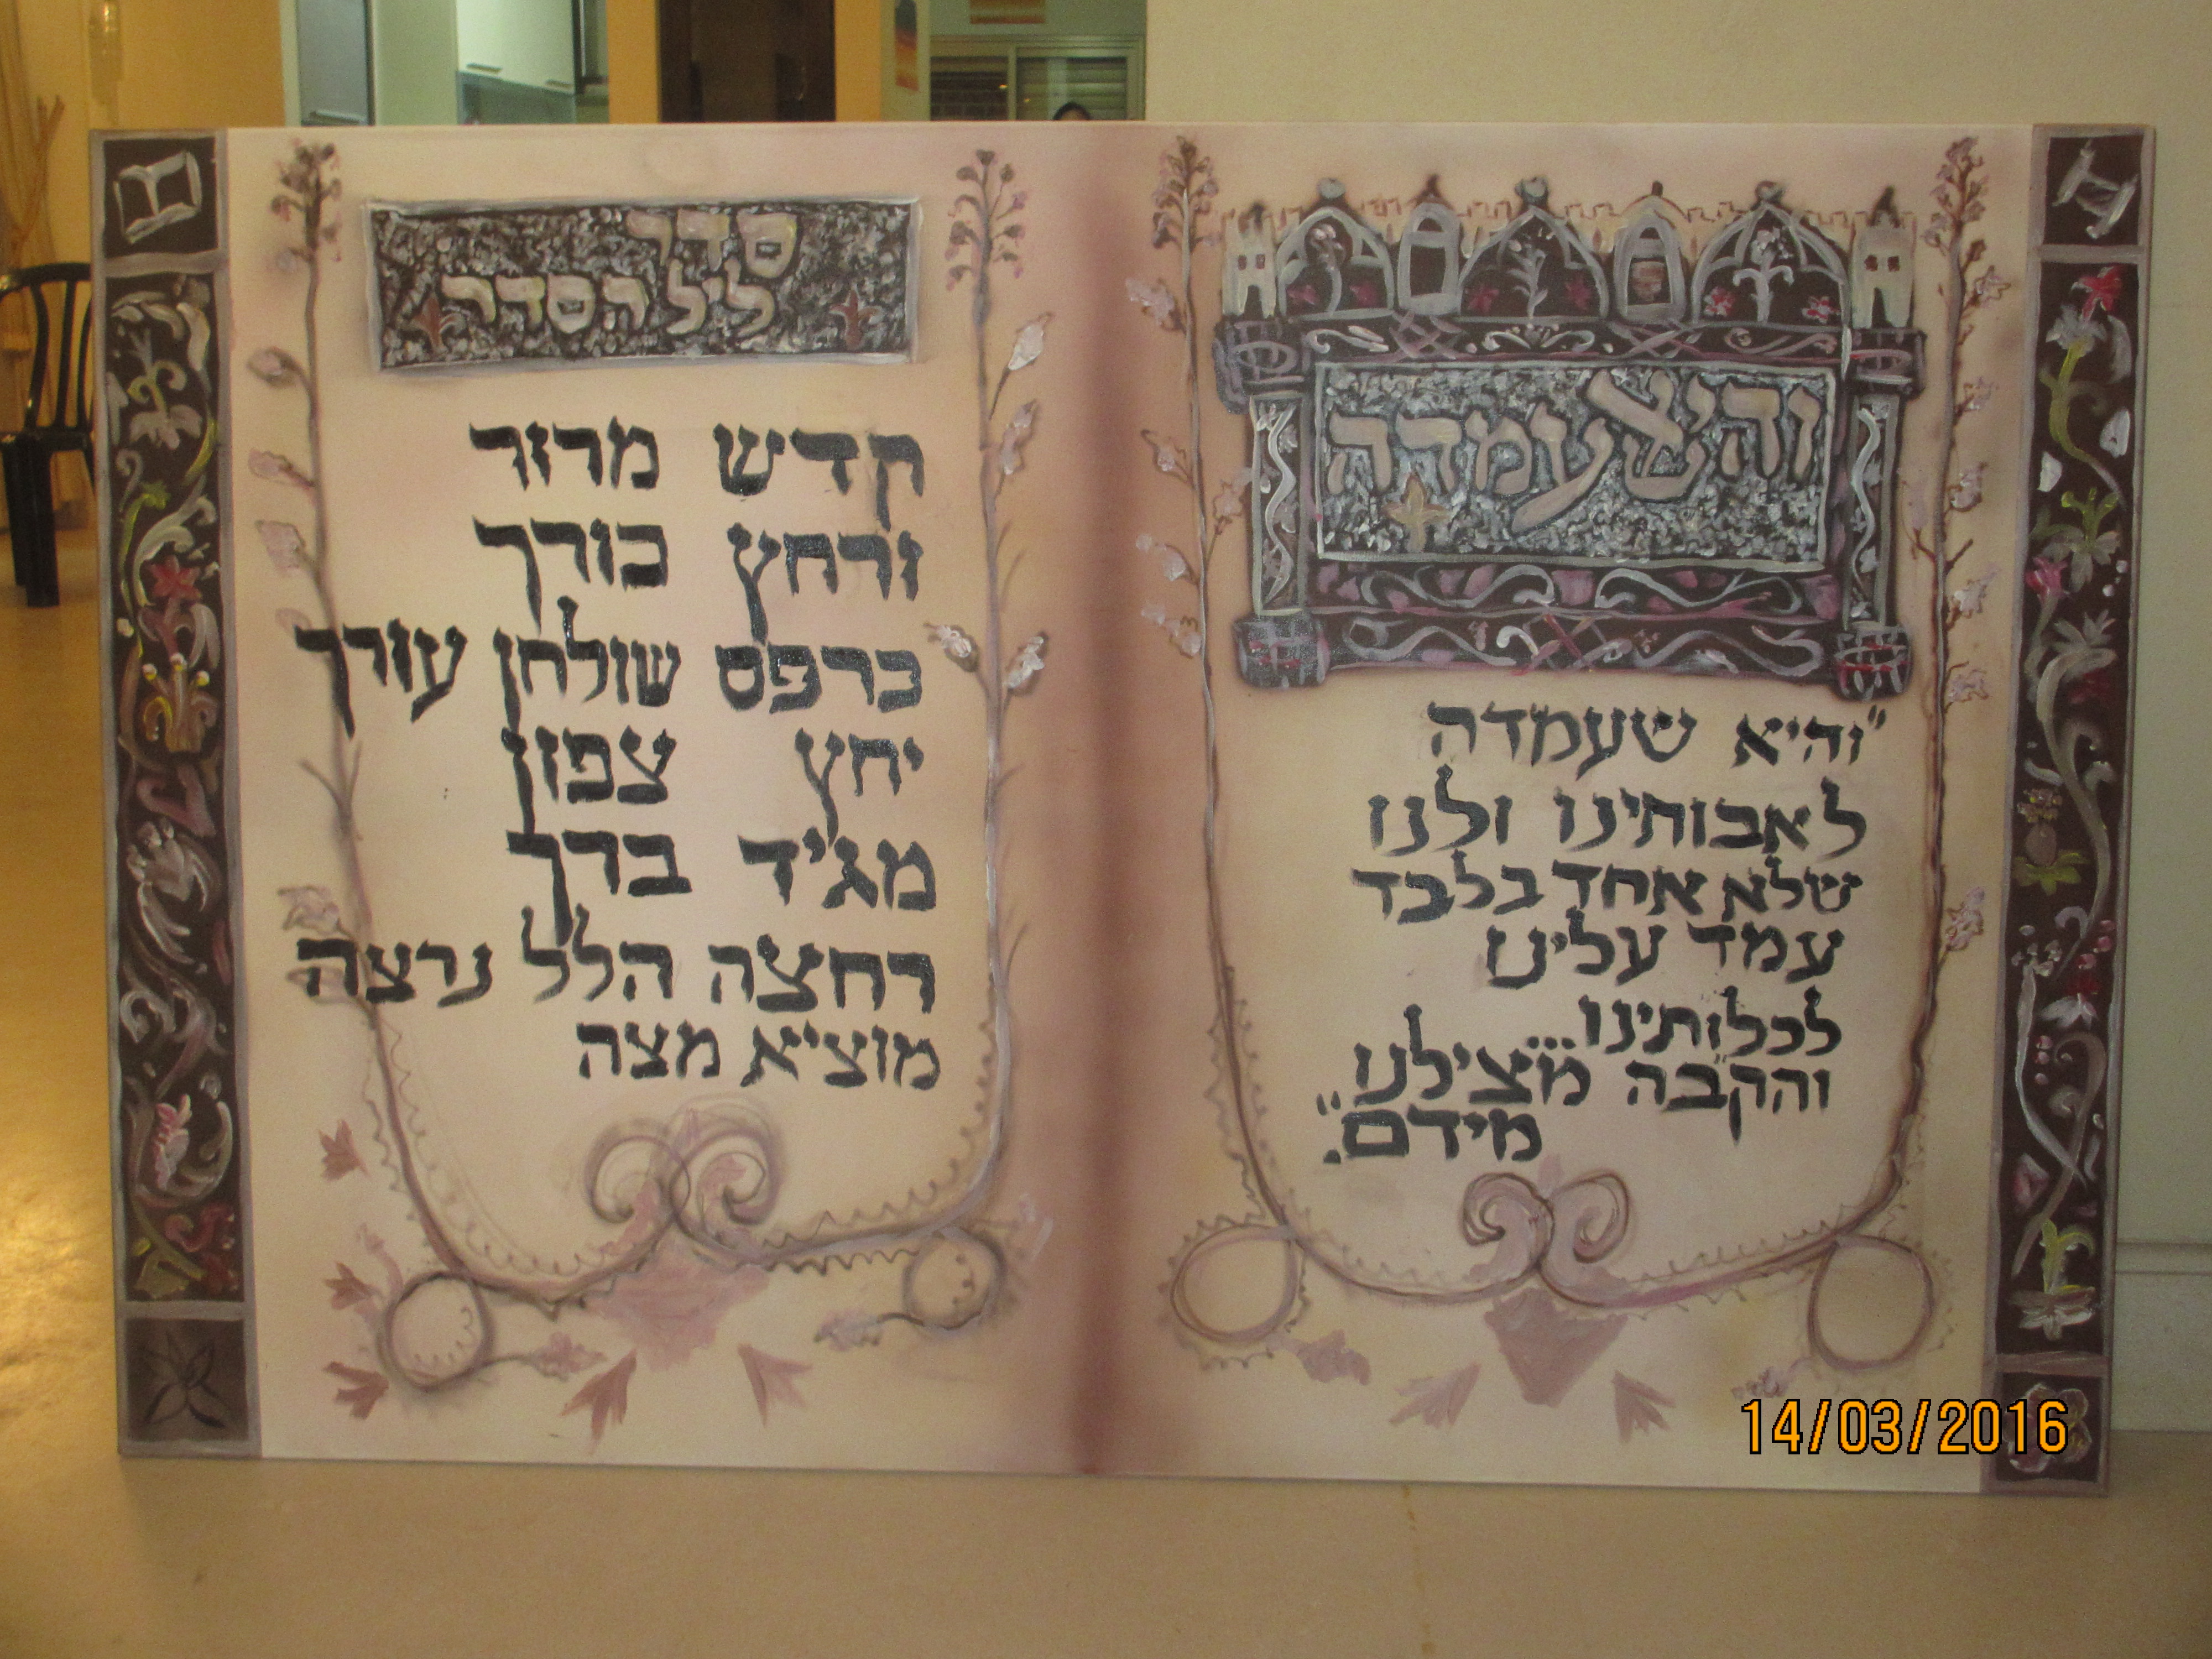 והיא שעמדה
"והיא שעמדה
לאבותינו ולנו
שלא אחד בלבד
עמד עלינו
לכלותינו...
והקב"ה מצילנו
מידם".
סדר
ליל הסדר
קדש מרור
ורחץ כורך
כרפס שולחן עורך
יחץ צפון
מגיד ברך
רחצה הלל נרצה
מוציא מצה
14/03/2016